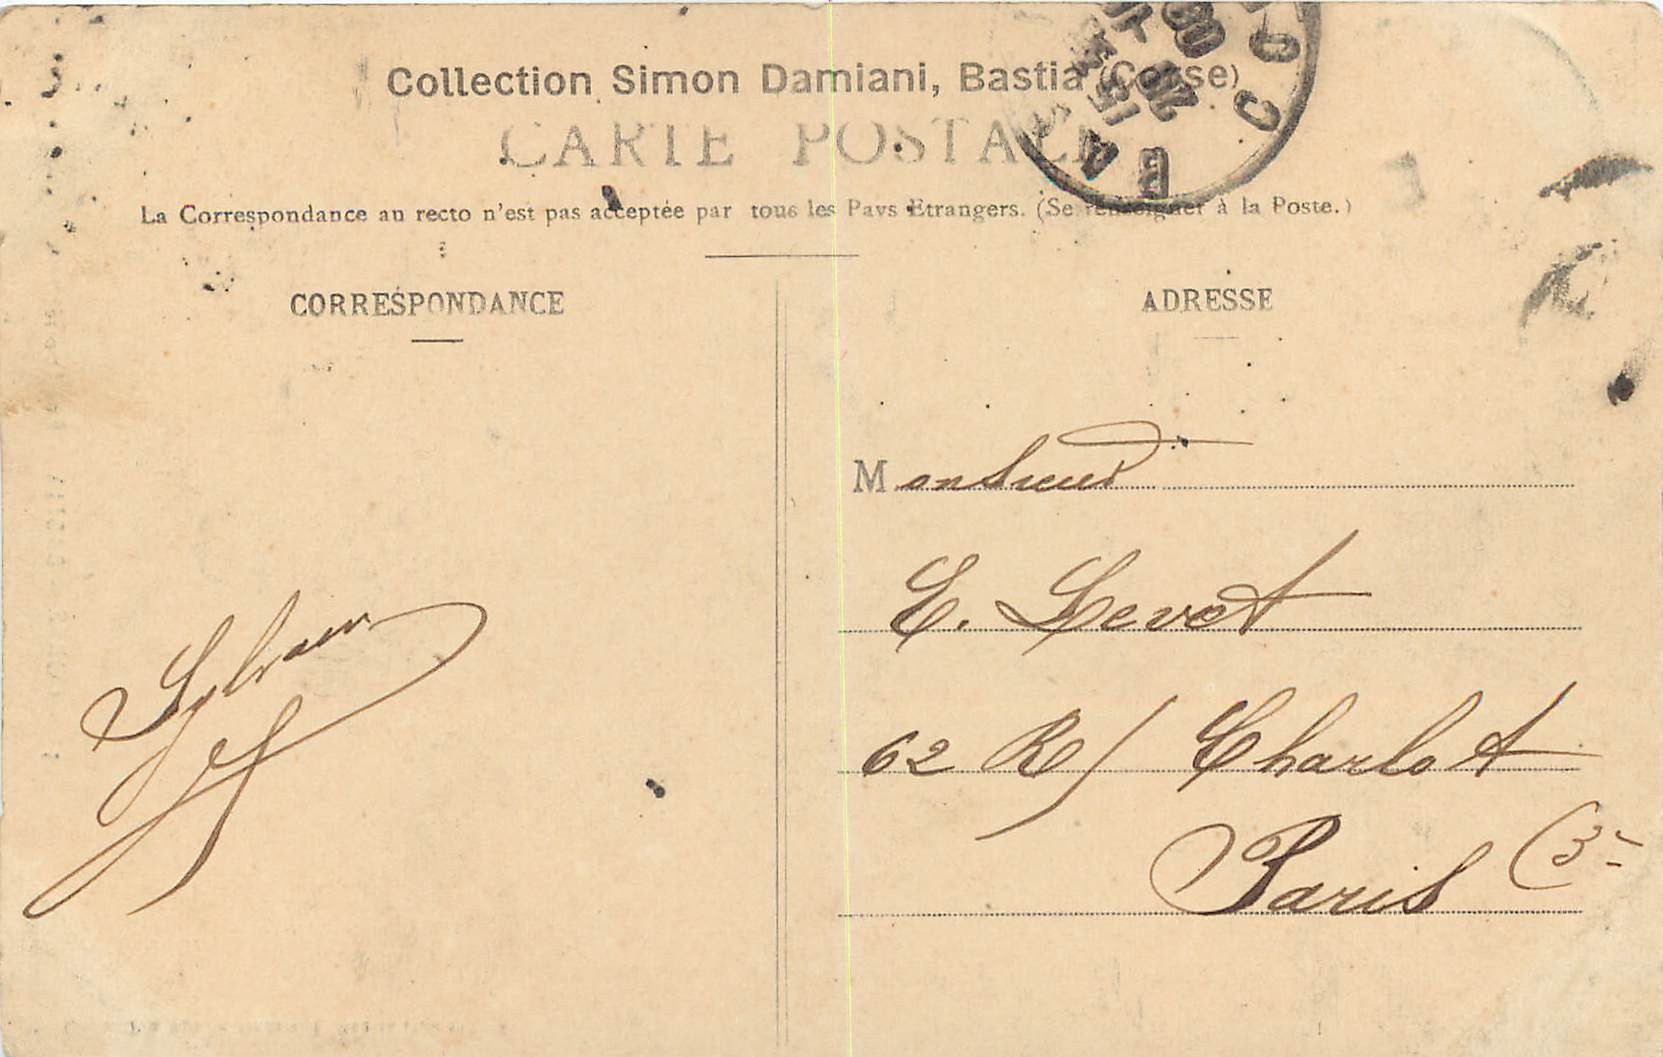 Collection Simon Damiani, Bastia (Corse)
CARTE POSTALE
La Correspondance au recto n'est pas acceptée par tous les Pays Etrangers. (Se renseigner à la Poste.)
CORRESPONDANCE
ADRESSE
Monsieur
E. Levet
62 R/ Charlot
Paris (3
Sylvain